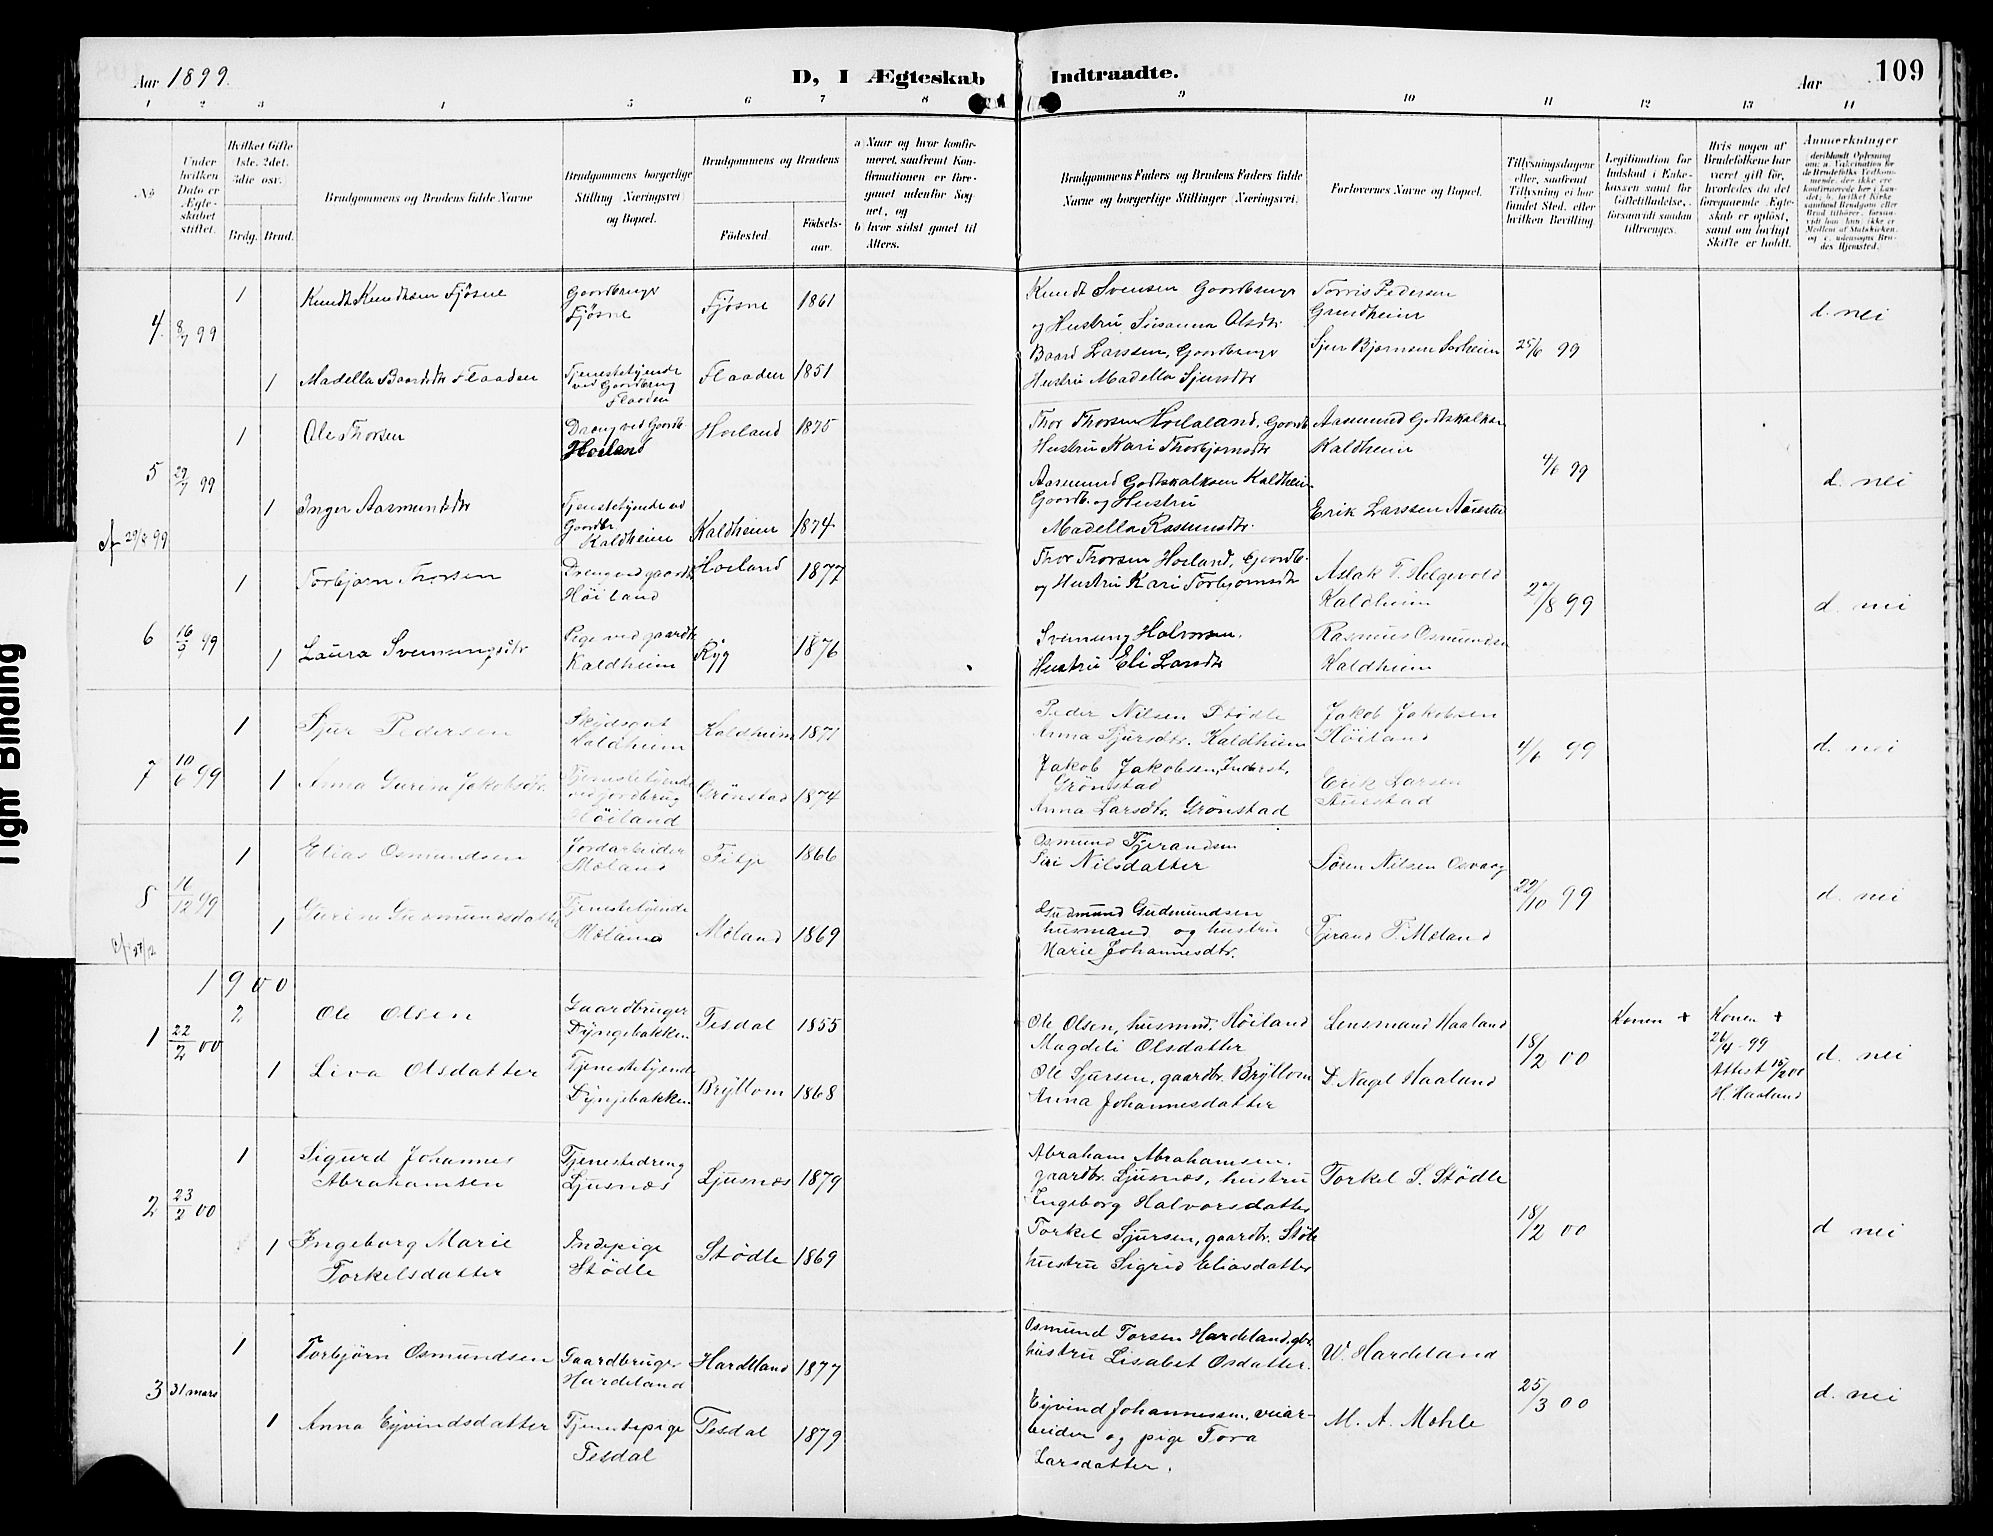 Aar 1899.
D, I Ægteskab Indtraadte.
Aar
109
1 2 3 4 5 6 7 8 9 10 11 12 13 14
No
Under hvilken Dato er Ægteskabet stiftet.
Hvilket Gifte 1ste. 2det. 3die osv.
Brdg. Brud.
Brudgommens og Brudens fulde Navne
Brudgommens borgerlige Stilling (Næringsvei) og Bopæl.
Brudgommens og Brudens
Fødested.
Fødselsaar.
a Naar og hvor konfirmeret, saafremt Konfirmationen er foregaaet udenfor Sognet, og
b hvor sidst gaaet til Alters.
Brudgommens Faders og Brudens Faders fulde Navne og borgerlige Stillinger (Næringsvei).
Forlovernes Navne og Bopæl.
Tillysningsdagene eller, saafremt Tillysning ei har fundet Sted, efter hvilken Bevilling
Legitimation for Indskud i Enkekassen samt for Giftetilladelse, forsaavidt saadan tiltrænges.
Hvis nogen af Brudefolkene har været gift før, hvorledes da det foregaaende Ægteskab er opløst, samt om lovligt Skifte er holdt.
Anmerkninger
4. 8/7 99
1
Knudt Knudtsen Fjøsne
Goordbruger
Fjøsne
Fjøsne 1861
Knudt Svensen Goordbruger
og Hustru Susanna Olsdtr
Torris Pedersen
Grindheim
d. nei
1
Madella Baardsdtr Flaaden
Tjenestetjende
ved Goordbrug
Flaaden
Flaaden 1851
Baard Larssen, Goordbruger
Hustru Madella Sjursdtr
Sjur Bjørnsen Sørheim
25/6 99
5
1
Ole Thorsen
Dreng ved Goordb
Hoiland
Hoiland 1875
Thor Thorsen Hoilaland, Goordb
Hustru Kari Thorbjørnsdtr
Aasmund Godtskalksen
Kaldheim
4/6 99
d. nei
1
Inger Aasmundsdtr
Tjenestetjende ved
Goordbr
Kaldheim
Kaldheim 1874
Aasmund Godtskalksen Kaldheim
Goordb. og Hustru
Madella Rasmusdtr.
Erik Larssen
6
1
Torbjørn Thorsen
Dreng ved gaardbr
Høiland
Hoiland 1877
Thor Thorsen Hoiland, Gjordb.
og Hustru Kari Torbjørnsdtr
Aslak T. Helgevold
Kaldheim
27/8 99
d. nei
1
Laura Svenungsdtr
Pige ved gaardbr
Kaldheim
Ryg 1876
Svenung Halvorsen.
Hustru Eli Larsdtr
Rasmus Osmundsen
Kaldheim
7 10/6 99
1
Sjur Pedersen
Skydsgut
Kaldheim
Kaldheim 1871
Peder Nilsen Stødle
Anna Sjursdtr. Kaldheim
Jakob Jakobsen
Høiland
4/6 99
d. nei
1
Anna Gurina Jakobsdtr.
Tjenestetjende
ved jordbrug
Høiland
Grönstad 1874
Jakob Jakobsen, Inderst,
Grönstad
Anna Larsdtr. Grönstad
Erik Larsen
8
1
Elias Osmundsen
Jordarbeider
Mæland
Fitje 1866
Osmund Tjerandsen
Siri Nilsdatter
Søren Nilsen Osvaag
22/10 99
d. nei
1
Gurine Gudmundsdatter
Tjenestetjende
Mæland
Mæland 1869
Gudmund Gudmundsen
husmand og hustru
Marie Johannesdtr.
Tjerand T. Mæland
1900
1 22/2 00
2
Ole Olsen
Gaardbruger
Dyngebakken
Tesdal 1855
Ole Olsen, husmnd. Høiland
Magdeli Olsdatter
Lensmand Haaland
18/2 00
Konen +
Konen +
26/4 99
Attest 15/2 00
H. Haaland
d. nei
1
Liva Olsdatter
Tjenestetjende
Dyngebakken
Bryllom 1868
Ole Sjursen, gaardbr. Bryllom
Anna Johannesdatter
D. Nagel Haaland
2 23/2 00
1
Sigurd Johannes
Abrahamsen
Tjenestedreng
Ljusnæs
Ljusnæs 1879
Abraham Abrahamsen.
gaardbr. Ljusnæs, hustru
Ingeborg Halvorsdatter
Torkel S. Stødle
18/2 00
d. nei
1
Ingeborg Marie
Torkelsdatter
Indepige
Stødle
Stödle 1869
Torkel Sjursen, gaardbr. Stöle
hustru Sigrid Eliasdatter
3 31 mars
1
Torbjörn Osmundsen
Gaardbruger
Hardeland
Hardeland 1877
Osmund Torsen Hardeland, gbr.
hustru Lisabet Osdatter.
W. Hardeland
25/3 00
d. nei
1
Anna Eyvindsdatter
Tjenestepige
Tesdal
Tesdal 1879
Eyvind Johannessen, veiar-
beider og pige Tora
Larsdatter.
M. A. Mehle
Tight Binding